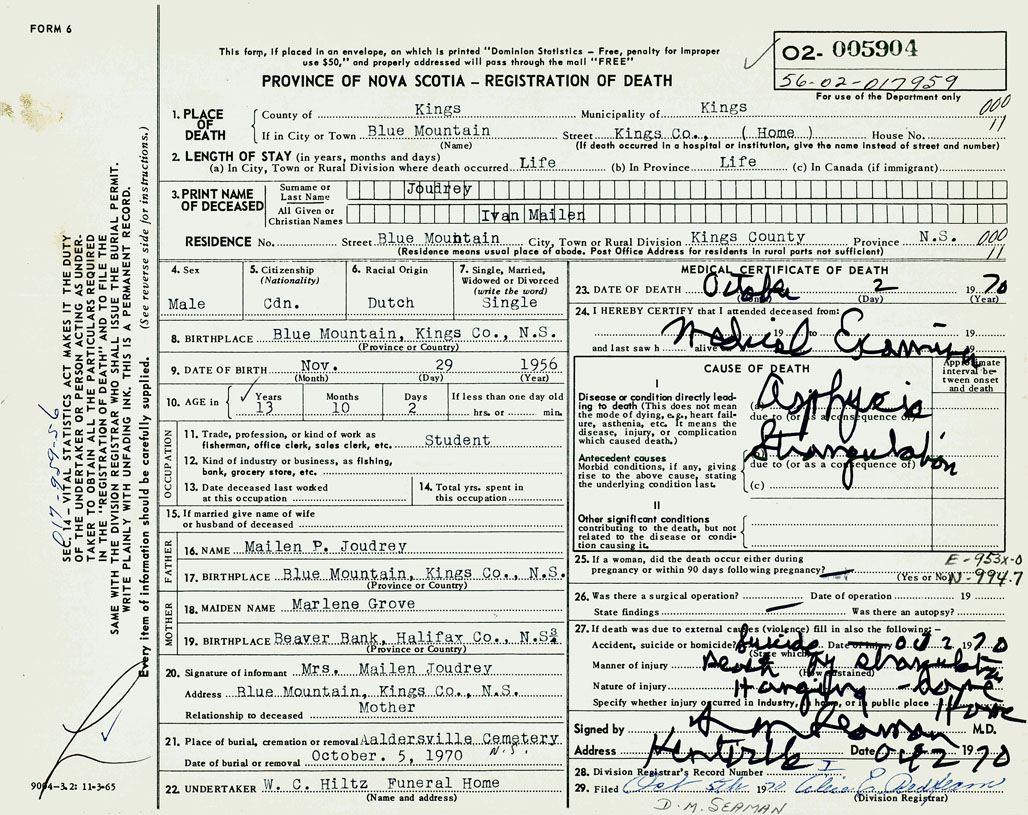 FORM 6
This form, if placed in an envelope, on which is printed "Dominion Statistics – Free, penalty for improper
use $50," and properly addressed will pass through the mail "FREE"
PROVINCE OF NOVA SCOTIA – REGISTRATION OF DEATH
02- 005904
56-02-017959
For use of the Department only
000
11
1. PLACE OF DEATH
County of Kings Municipality of Kings
If in City or Town Blue Mountain Street Kings Co., ( Home ) House No.
(Name) (If death occurred in a hospital or institution, give the name instead of street and number)
2. LENGTH OF STAY (in years, months and days)
(a) In City, Town or Rural Division where death occurred Life (b) In Province Life (c) In Canada (if immigrant)
3. PRINT NAME OF DECEASED
Surname or Last Name Joudrey
All Given or Christian Names Ivan Mailen
RESIDENCE No. Street Blue Mountain City, Town or Rural Division Kings County Province N.S. 000
11
(Residence means usual place of abode. Post Office Address for residents in rural parts not sufficient)
4. Sex
Male
5. Citizenship
(Nationality)
Cdn.
6. Racial Origin
Dutch
7. Single, Married,
Widowed or Divorced
(write the word)
Single
8. BIRTHPLACE Blue Mountain, Kings Co., N.S.
(Province or Country)
9. DATE OF BIRTH Nov. 29 1956
(Month) (Day) (Year)
10. AGE in Years Months Days If less than one day old
13 10 2 hrs. or min.
OCCUPATION
11. Trade, profession, or kind of work as
fisherman, office clerk, sales clerk, etc. Student
12. Kind of industry or business, as fishing,
bank, grocery store, etc.
13. Date deceased last worked
at this occupation
14. Total yrs. spent in
this occupation
15. If married give name of wife
or husband of deceased
FATHER
16. NAME Mailen P. Joudrey
17. BIRTHPLACE Blue Mountain, Kings Co., N.S.
(Province or Country)
MOTHER
18. MAIDEN NAME Marlene Grove
19. BIRTHPLACE Beaver Bank, Halifax Co., N.S.
(Province or Country)
20. Signature of informant Mrs. Mailen Joudrey
Address Blue Mountain, Kings Co., N.S.
Relationship to deceased Mother
21. Place of burial, cremation or removal Aaldersville Cemetery
N.S.
Date of burial or removal October. 5, 1970
22. UNDERTAKER W. C. Hiltz Funeral Home
(Name and address)
MEDICAL CERTIFICATE OF DEATH
23. DATE OF DEATH October 2 1970
(Month) (Day) (Year)
24. I HEREBY CERTIFY that I attended deceased from:
19 to 19
and last saw h alive 19
Medical Examiner
CAUSE OF DEATH
Approximate
interval be-
tween onset
and death
I
Disease or condition directly lead-
ing to death (This does not mean
the mode of dying, e.g., heart fail-
ure, asthenia, etc. It means the
disease, injury, or complication
which caused death.)
(a) Asphyxia
due to (or as a consequence of)
Antecedent causes
Morbid conditions, if any, giving
rise to the above cause, stating
the underlying condition last.
(b) Strangulation
due to (or as a consequence of)
(c)
II
Other significant conditions
contributing to the death, but not
related to the disease or condi-
tion causing it.
25. If a woman, did the death occur either during
pregnancy or within 90 days following pregnancy? (Yes or No)
E-953x-0
N-994.7
26. Was there a surgical operation? Date of operation 19
State findings Was there an autopsy?
27. If death was due to external causes (violence) fill in also the following:–
Accident, suicide or homicide? Suicide Date of injury Oct 2 1970
(State which)
Manner of injury Death by strangulation
(How sustained)
Nature of injury Hanging - home
Specify whether injury occurred in Industry, in home, or in public place Home
Signed by M.D.
Address Kentville Date Oct 2 1970
28. Division Registrar's Record Number
29. Filed Oct 5th 1970
(Division Registrar)
D.M. SEAMAN
9004–3.2: 11-3-65
017-959-56
SEC. 14 – VITAL STATISTICS ACT MAKES IT THE DUTY
OF THE UNDERTAKER OR PERSON ACTING AS UNDER-
TAKER TO OBTAIN ALL THE PARTICULARS REQUIRED
IN THE "REGISTRATION OF DEATH" AND TO FILE THE
SAME WITH THE DIVISION REGISTRAR WHO SHALL ISSUE THE BURIAL PERMIT.
WRITE PLAINLY WITH UNFADING INK. THIS IS A PERMANENT RECORD.
Every item of information should be carefully supplied. (See reverse side for instructions.)